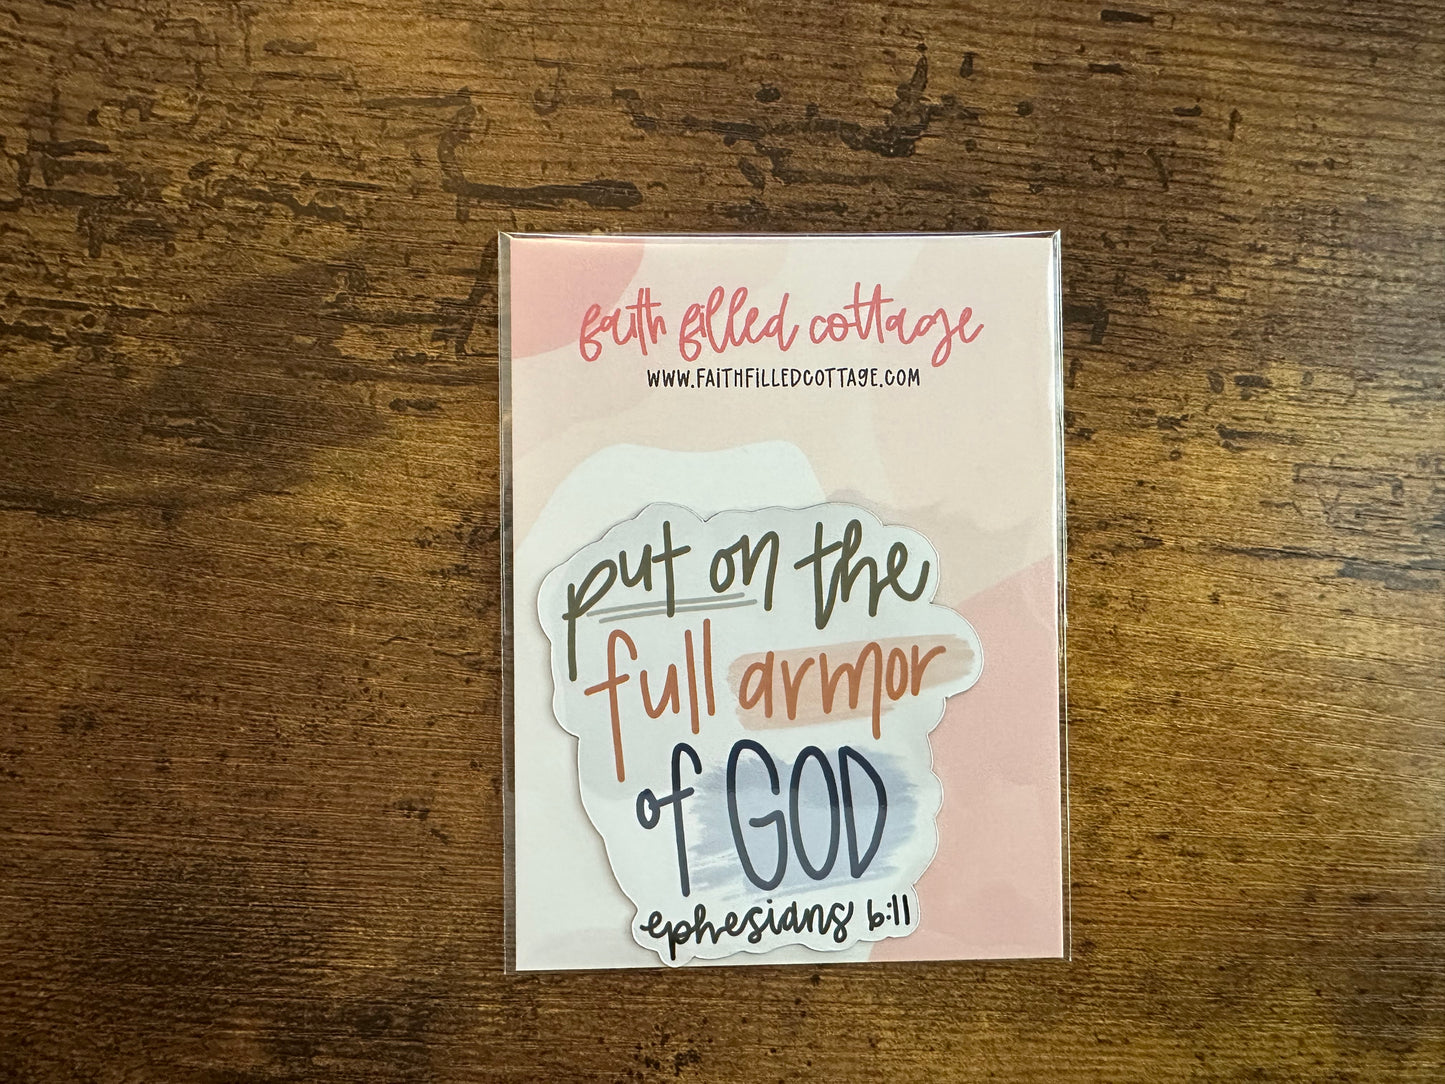 faith filled cottage
WWW.FAITHFILLEDCOTTAGE.COM
put on the
full armor
of GOD
ephesians 6:11